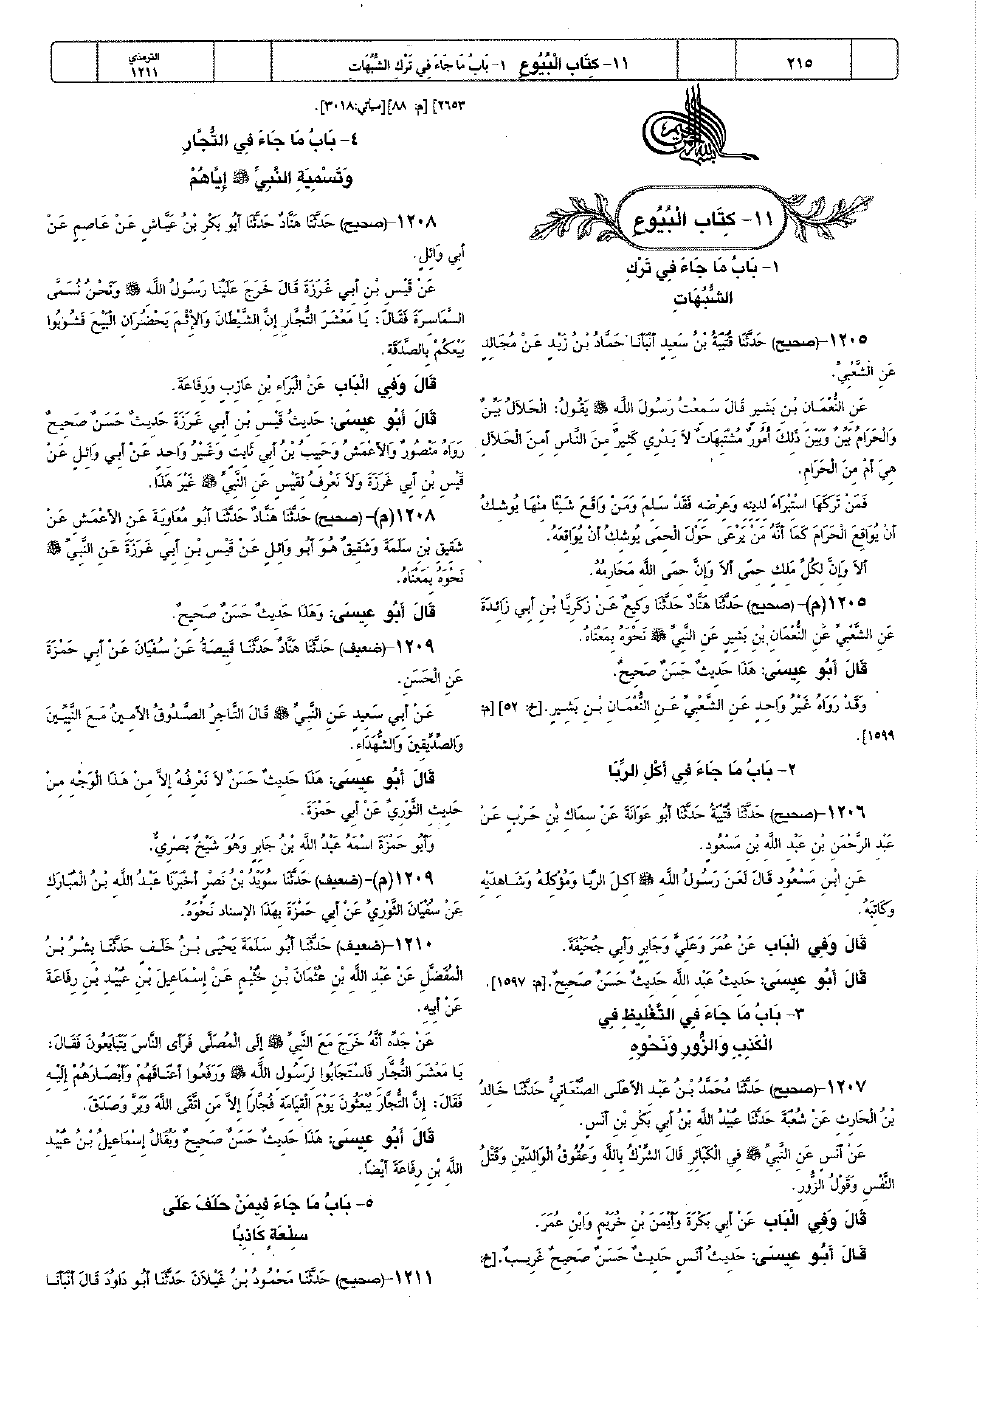 ٢١٥
١١- كِتَاب الْبُيُوع ١- بَابُ مَا جَاءَ فِي تَرْكِ الشُّبُهَاتِ
الترمذي
١٢١١
١١- كِتَاب الْبُيُوع
١- بَابُ مَا جَاءَ فِي تَرْكِ
الشُّبُهَاتِ
١٢٠٥-(صحيح) حَدَّثَنَا قُتَيْبَةُ بْنُ سَعِيدٍ أَنْبَأَنَا حَمَّادُ بْنُ زَيْدٍ عَنْ مُجَالِدٍ
عَنِ الشَّعْبِيِّ.
عَنِ النُّعْمَانِ بْنِ بَشِيرٍ قَالَ سَمِعْتُ رَسُولَ اللَّه ﷺ يَقُولُ: الْحَلاَلُ بَيِّنٌ
وَالْحَرَامُ بَيِّنٌ وَبَيْنَ ذَلِكَ أُمُورٌ مُشْتَبِهَاتٌ لاَ يَدْرِي كَثِيرٌ مِنَ النَّاسِ أَمِنَ الْحَلاَلِ
هِيَ أَمْ مِنَ الْحَرَامِ.
فَمَنْ تَرَكَهَا اسْتِبْرَاءً لِدِينِهِ وَعِرْضِهِ فَقَدْ سَلِمَ وَمَنْ وَاقَعَ شَيْئًا مِنْهَا يُوشِكُ
أَنْ يُوَاقِعَ الْحَرَامَ كَمَا أَنَّهُ مَنْ يَرْعَى حَوْلَ الْحِمَى يُوشِكُ أَنْ يُوَاقِعَهُ.
أَلاَ وَإِنَّ لِكُلِّ مَلِكٍ حِمًى أَلاَ وَإِنَّ حِمَى اللَّه مَحَارِمُهُ.
١٢٠٥(م)- (صحيح) حَدَّثَنَا هَنَّادٌ حَدَّثَنَا وَكِيعٌ عَنْ زَكَرِيَّا بْنِ أَبِي زَائِدَةَ
عَنِ الشَّعْبِيِّ عَنِ النُّعْمَانِ بْنِ بَشِيرٍ عَنِ النَّبِيِّ ﷺ نَحْوَهُ بِمَعْنَاهُ.
قَالَ أَبُو عِيسَى: هَذَا حَدِيثٌ حَسَنٌ صَحِيحٌ.
وَقَدْ رَوَاهُ غَيْرُ وَاحِدٍ عَنِ الشَّعْبِيِّ عَنِ النُّعْمَانِ بْنِ بَشِيرٍ.[خ: ٥٢] [م:
١٥٩٩].
٢- بَابُ مَا جَاءَ فِي أَكْلِ الرِّبَا
١٢٠٦-(صحيح) حَدَّثَنَا قُتَيْبَةُ حَدَّثَنَا أَبُو عَوَانَةَ عَنْ سِمَاكِ بْنِ حَرْبٍ عَنْ
عَبْدِ الرَّحْمَنِ بْنِ عَبْدِ اللَّه بْنِ مَسْعُودٍ.
عَنِ ابْنِ مَسْعُودٍ قَالَ لَعَنَ رَسُولُ اللَّه ﷺ آكِلَ الرِّبَا وَمُؤْكِلَهُ وَشَاهِدَيْهِ
وَكَاتِبَهُ.
قَالَ وَفِي الْبَاب عَنْ عُمَرَ وَعَلِيٍّ وَجَابِرٍ وَأَبِي جُحَيْفَةَ.
قَالَ أَبُو عِيسَى: حَدِيثُ عَبْدِ اللَّه حَدِيثٌ حَسَنٌ صَحِيحٌ.[م: ١٥٩٧].
٣- بَابُ مَا جَاءَ فِي التَّغْلِيظِ فِي
الْكَذِبِ وَالزُّورِ وَنَحْوِهِ
١٢٠٧-(صحيح) حَدَّثَنَا مُحَمَّدُ بْنُ عَبْدِ الأَعْلَى الصَّنْعَانِيُّ حَدَّثَنَا خَالِدُ
بْنُ الْحَارِثِ عَنْ شُعْبَةَ حَدَّثَنَا عُبَيْدُ اللَّه بْنُ أَبِي بَكْرِ بْنِ أَنَسٍ.
عَنْ أَنَسٍ عَنِ النَّبِيِّ ﷺ فِي الْكَبَائِرِ قَالَ الشِّرْكُ بِاللَّهِ وَعُقُوقُ الْوَالِدَيْنِ وَقَتْلُ
النَّفْسِ وَقَوْلُ الزُّورِ.
قَالَ وَفِي الْبَاب عَنْ أَبِي بَكْرَةَ وَأَيْمَنَ بْنِ خُرَيْمٍ وَابْنِ عُمَرَ.
قَالَ أَبُو عِيسَى: حَدِيثُ أَنَسٍ حَدِيثٌ حَسَنٌ صَحِيحٌ غَرِيبٌ.[خ:
٢٦٥٣] [م: ٨٨] [سيأتي:٣٠١٨].
٤- بَابُ مَا جَاءَ فِي التُّجَّارِ
وَتَسْمِيَةِ النَّبِيِّ ﷺ إِيَّاهُمْ
١٢٠٨-(صحيح) حَدَّثَنَا هَنَّادٌ حَدَّثَنَا أَبُو بَكْرِ بْنُ عَيَّاشٍ عَنْ عَاصِمٍ عَنْ
أَبِي وَائِلٍ.
عَنْ قَيْسِ بْنِ أَبِي غَرَزَةَ قَالَ خَرَجَ عَلَيْنَا رَسُولُ اللَّه ﷺ وَنَحْنُ نُسَمَّى
السَّمَاسِرَةَ فَقَالَ: يَا مَعْشَرَ التُّجَّارِ إِنَّ الشَّيْطَانَ وَالإِثْمَ يَحْضُرَانِ الْبَيْعَ فَشُوبُوا
بَيْعَكُمْ بِالصَّدَقَةِ.
قَالَ وَفِي الْبَاب عَنْ الْبَرَاءِ بْنِ عَازِبٍ وَرِفَاعَةَ.
قَالَ أَبُو عِيسَى: حَدِيثُ قَيْسِ بْنِ أَبِي غَرَزَةَ حَدِيثٌ حَسَنٌ صَحِيحٌ
رَوَاهُ مَنْصُورٌ وَالأَعْمَشُ وَحَبِيبُ بْنُ أَبِي ثَابِتٍ وَغَيْرُ وَاحِدٍ عَنْ أَبِي وَائِلٍ عَنْ
قَيْسِ بْنِ أَبِي غَرَزَةَ وَلاَ نَعْرِفُ لِقَيْسٍ عَنِ النَّبِيِّ ﷺ غَيْرَ هَذَا.
١٢٠٨(م)- (صحيح) حَدَّثَنَا هَنَّادٌ حَدَّثَنَا أَبُو مُعَاوِيَةَ عَنِ الأَعْمَشِ عَنْ
شَقِيقِ بْنِ سَلَمَةَ وَشَقِيقٌ هُوَ أَبُو وَائِلٍ عَنْ قَيْسِ بْنِ أَبِي غَرَزَةَ عَنِ النَّبِيِّ ﷺ
نَحْوَهُ بِمَعْنَاهُ.
قَالَ أَبُو عِيسَى: وَهَذَا حَدِيثٌ حَسَنٌ صَحِيحٌ.
١٢٠٩-(ضعيف) حَدَّثَنَا هَنَّادٌ حَدَّثَنَا قَبِيصَةُ عَنْ سُفْيَانَ عَنْ أَبِي حَمْزَةَ
عَنِ الْحَسَنِ.
عَنْ أَبِي سَعِيدٍ عَنِ النَّبِيِّ ﷺ قَالَ التَّاجِرُ الصَّدُوقُ الأَمِينُ مَعَ النَّبِيِّينَ
وَالصِّدِّيقِينَ وَالشُّهَدَاءِ.
قَالَ أَبُو عِيسَى: هَذَا حَدِيثٌ حَسَنٌ لاَ نَعْرِفُهُ إِلاَّ مِنْ هَذَا الْوَجْهِ مِنْ
حَدِيثِ الثَّوْرِيِّ عَنْ أَبِي حَمْزَةَ.
وَأَبُو حَمْزَةَ اسْمُهُ عَبْدُ اللَّه بْنُ جَابِرٍ وَهُوَ شَيْخٌ بَصْرِيٌّ.
١٢٠٩(م)-(ضعيف) حَدَّثَنَا سُوَيْدُ بْنُ نَصْرٍ أَخْبَرَنَا عَبْدُ اللَّه بْنُ الْمُبَارَكِ
عَنْ سُفْيَانَ الثَّوْرِيِّ عَنْ أَبِي حَمْزَةَ بِهَذَا الإِسْنَادِ نَحْوَهُ.
١٢١٠-(ضعيف) حَدَّثَنَا أَبُو سَلَمَةَ يَحْيَى بْنُ خَلَفٍ حَدَّثَنَا بِشْرُ بْنُ
الْمُفَضَّلِ عَنْ عَبْدِ اللَّه بْنِ عُثْمَانَ بْنِ خُثَيْمٍ عَنْ إِسْمَاعِيلَ بْنِ عُبَيْدِ بْنِ رِفَاعَةَ
عَنْ أَبِيهِ.
عَنْ جَدِّهِ أَنَّهُ خَرَجَ مَعَ النَّبِيِّ ﷺ إِلَى الْمُصَلَّى فَرَأَى النَّاسَ يَتَبَايَعُونَ فَقَالَ:
يَا مَعْشَرَ التُّجَّارِ فَاسْتَجَابُوا لِرَسُولِ اللَّه ﷺ وَرَفَعُوا أَعْنَاقَهُمْ وَأَبْصَارَهُمْ إِلَيْهِ
فَقَالَ: إِنَّ التُّجَّارَ يُبْعَثُونَ يَوْمَ الْقِيَامَةِ فُجَّارًا إِلاَّ مَنِ اتَّقَى اللَّهَ وَبَرَّ وَصَدَقَ.
قَالَ أَبُو عِيسَى: هَذَا حَدِيثٌ حَسَنٌ صَحِيحٌ وَيُقَالُ إِسْمَاعِيلُ بْنُ عُبَيْدِ
اللَّهِ بْنِ رِفَاعَةَ أَيْضًا.
٥- بَابُ مَا جَاءَ فِيمَنْ حَلَفَ عَلَى
سِلْعَةٍ كَاذِبًا
١٢١١-(صحيح) حَدَّثَنَا مَحْمُودُ بْنُ غَيْلاَنَ حَدَّثَنَا أَبُو دَاوُدَ قَالَ أَنْبَأَنَا